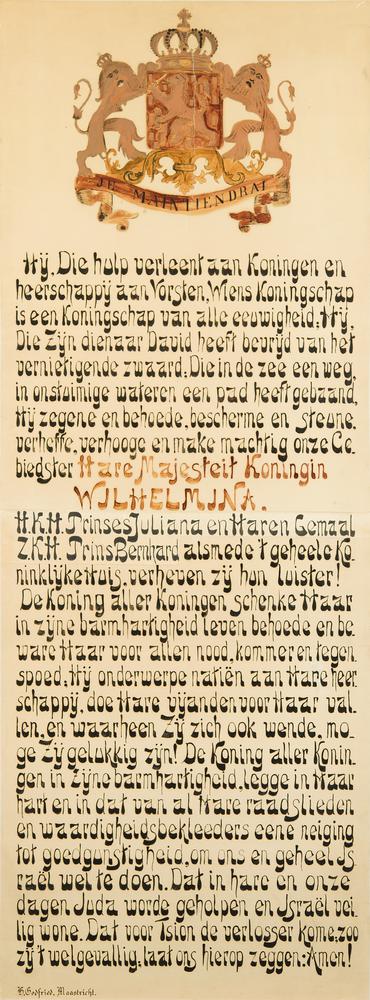 JE MAINTIENDRAI
Hij, Die hulp verleent aan Koningen en
heerschappij aan Vorsten, Wiens Koningschap
is een Koningschap van alle eeuwigheid; Hij,
Die Zijn dienaar David heeft bevrijd van het
vernietigende zwaard; Die in de zee een weg,
in onstuimige wateren een pad heeft gebaand,
Hij zegene en behoede, bescherme en steune,
verheffe, verhooge en make machtig onze Ge-
biedster Hare Majesteit Koningin
WILHELMINA.
H.K.H. Prinses Juliana en Haren Gemaal
Z.K.H. Prins Bernhard alsmede 't geheele Ko-
ninklijke Huis, verheven zij hun luister!
De Koning aller Koningen schenke Haar
in zijne barmhartigheid leven behoede en be-
ware Haar voor allen nood, kommer en tegen-
spoed; Hij onderwerpe natiën aan Hare heer-
schappij, doe Hare vijanden voor Haar val-
len, en waarheen Zij zich ook wende, mo-
ge Zij gelukkig zijn! De Koning aller Konin-
gen in Zijne barmhartigheid, legge in Haar
hart en in dat van al Hare raadslieden
en waardigheidsbekleeders eene neiging
tot goedgunstigheid, om ons en geheel Js-
raël wel te doen. Dat in hare en onze
dagen Juda worde geholpen en Jsraël vei-
lig wone. Dat voor Tsion de verlosser kome; zoo
zij 't welgevallig; laat ons hierop zeggen: Amen!
H. Godfried, Maastricht.